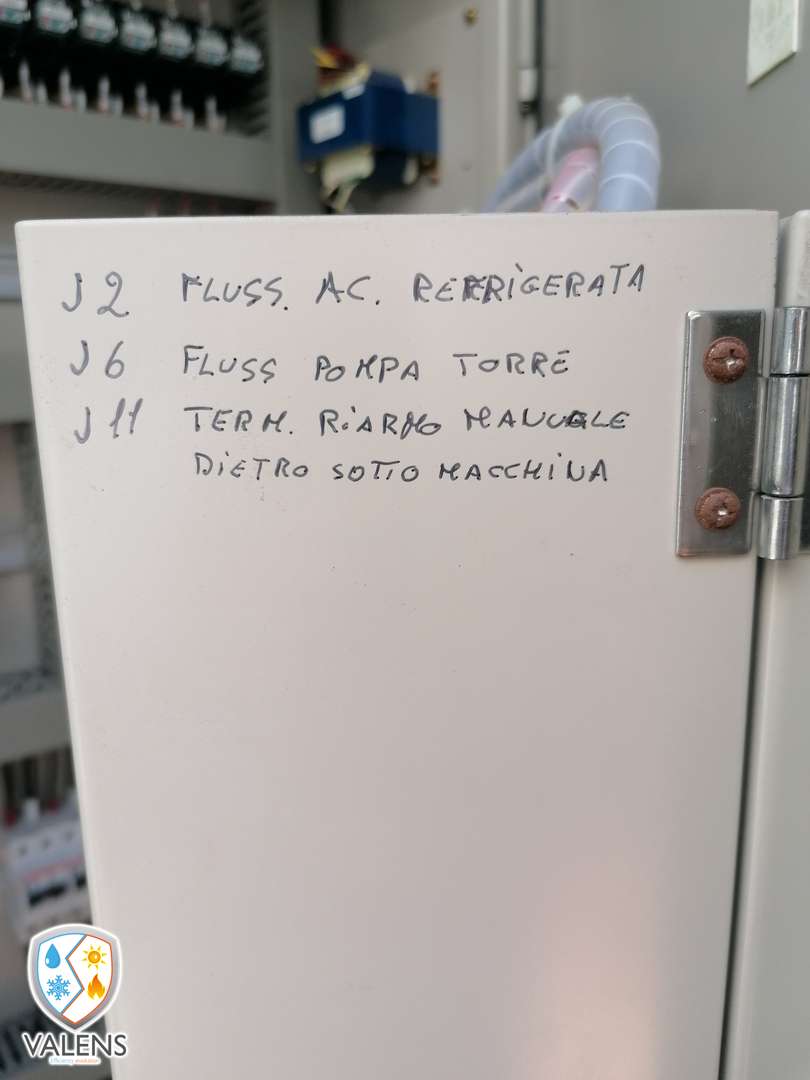 J2 FLUSS. AC. REFRIGERATA
J6 FLUSS POMPA TORRE
J11 TERM. RiARMO MANUALE
DiETRO SOTTO MACCHiNA
VALENS